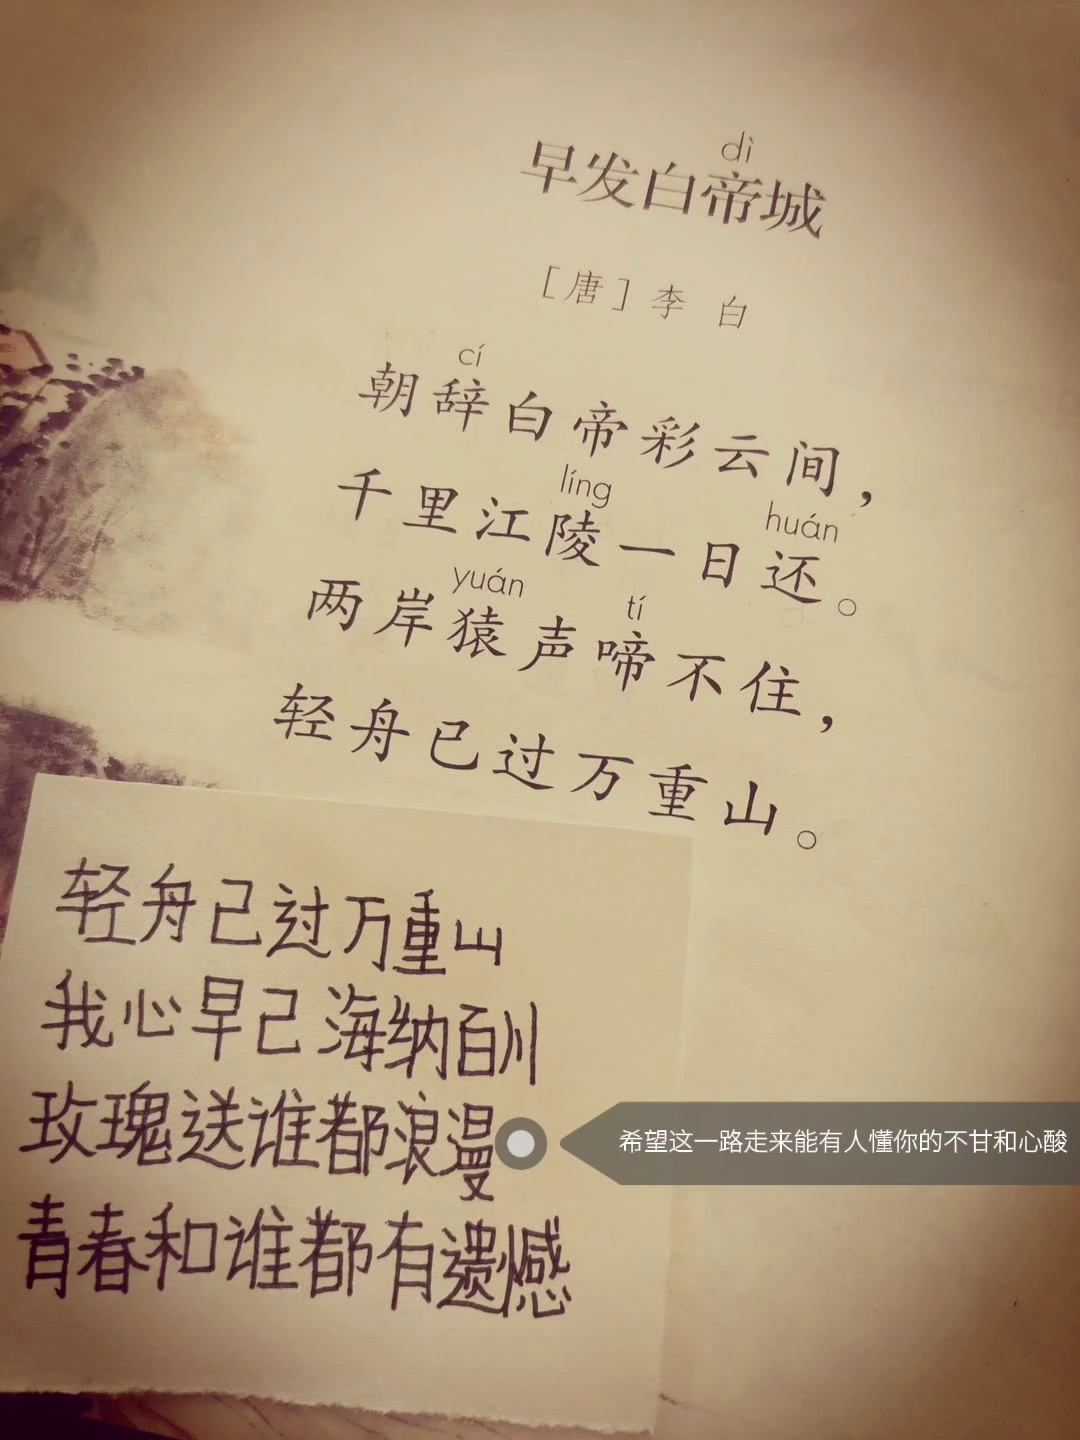 dì
早发白帝城
[唐]李 白
cí
朝辞白帝彩云间，
líng huán
千里江陵一日还。
yuán tí
两岸猿声啼不住，
轻舟已过万重山。
轻舟己过万重山
我心早己海纳百川
玫瑰送谁都浪漫
青春和谁都有遗憾
希望这一路走来能有人懂你的不甘和心酸